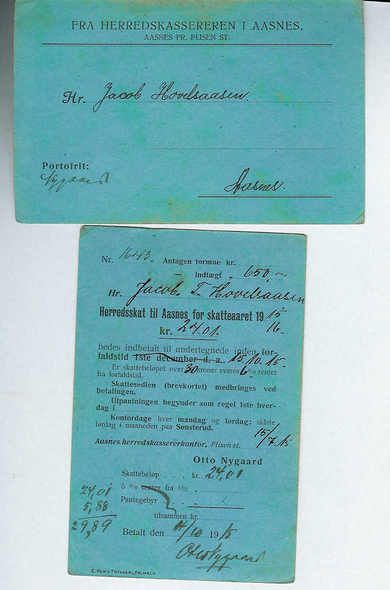 FRA HERREDSKASSEREREN I AASNES.
AASNES PR. FLISEN ST.
Hr. Jacob Hovelsaasen.
Portofrit:
Nygaard
Aasnes.
Nr. 1643. Antagen formue kr.
— indtægt „ 650,—
Hr. Jacob T. Hovelsaasen
Herredsskat til Aasnes for skatteaaret 1915
16.
kr. 24.01.
bedes indbetalt til undertegnede inden for-
faldstid 1ste december d. a. 15.10.15.
Er skattebeløpet over 30 kroner svares 6 % renter
fra forfaldstid.
Skattesedlen (brevkortet) medbringes ved
betalingen.
Utpantningen begynder som regel 1ste hver-
dag i
Kontordage hver mandag og lørdag; sidste
lørdag i maaneden paa Sønsterud.
15/7 15
Aasnes herredskassererkontor, Flisen st.
Otto Nygaard
Skattebeløp . kr. 24,01
% renter fra
Pantegebyr
tilsammen kr.
24,01
5,88
29,89
Betalt den 14/10 1915
Otto Nygaard